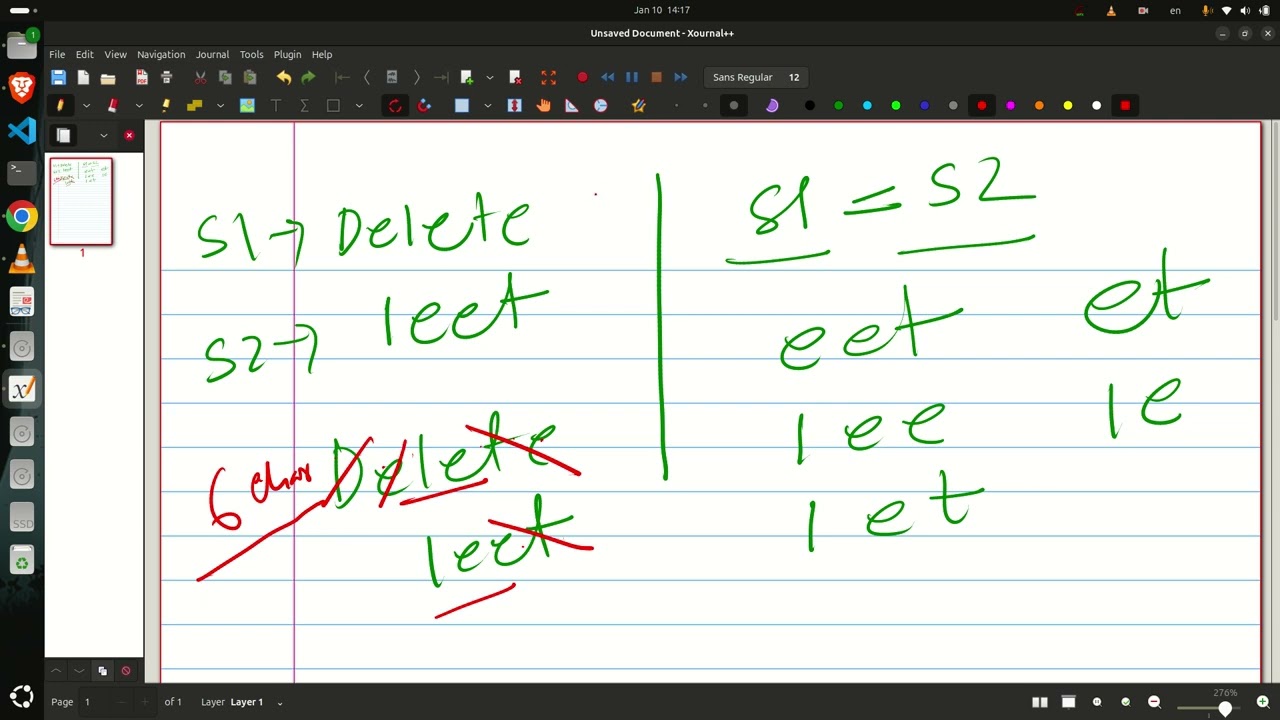 Jan 10 14:17
en
1
Unsaved Document - Xournal++
File Edit View Navigation Journal Tools Plugin Help
Sans Regular 12
s1→ Delete
s2→ leet
6 char Delete
leet
s1 = s2
eet et
lee le
let
1
SSD
Page 1 of 1 Layer Layer 1
276%